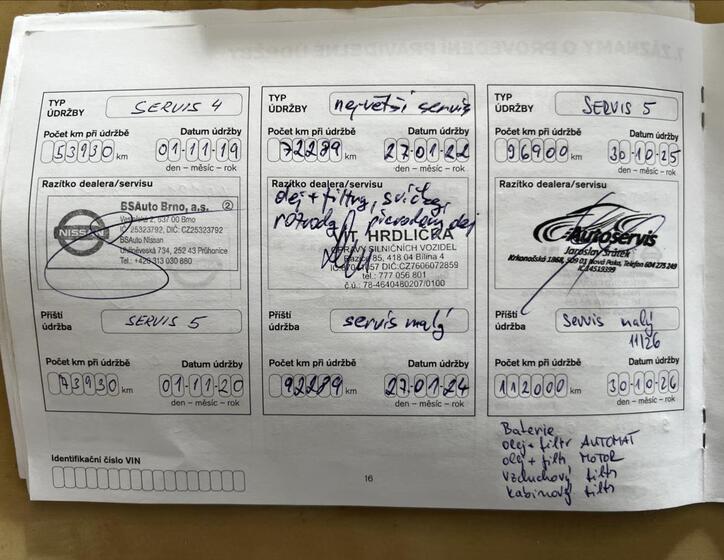 TYP ÚDRŽBY SERVIS 4
Počet km při údržbě Datum údržby
53930 km 01-11-19
den – měsíc – rok
Razítko dealera/servisu
BSAuto Brno, a.s. 2
NISSAN
IČ 25323792, DIČ: CZ25323792
BSAuto Nissan
734, 252 43 Průhonice
Tel.: +420 313 030 880
Příští údržba SERVIS 5
Počet km při údržbě Datum údržby
73930 km 01-11-20
den – měsíc – rok
Identifikační číslo VIN
TYP ÚDRŽBY největší servis
Počet km při údržbě Datum údržby
72289 km 27-01-22
den – měsíc – rok
Razítko dealera/servisu
olej + filtry, svíčky,
olej
VÍT HRDLIČKA
OPRAVY SILNIČNÍCH VOZIDEL
85, 418 04 Bílina 4
DIČ:CZ7606072859
tel.: 777 056 801
č.ú.: 78-4640480207/0100
Příští údržba servis malý
Počet km při údržbě Datum údržby
92289 km 27-01-24
den – měsíc – rok
16
TYP ÚDRŽBY SERVIS 5
Počet km při údržbě Datum údržby
96900 km 30-10-25
den – měsíc – rok
Razítko dealera/servisu
Autoservis
Jaroslav Šrůtek
Krkonošská 1868, 509 01 Nová Paka, Telefon 604 275 249
IČ 14519399
Příští údržba servis malý
11/26
Počet km při údržbě Datum údržby
112000 km 30-10-26
den – měsíc – rok
Baterie
olej + filtr AUTOMAT
olej + filtr MOTOR
Vzduchový filtr
kabinový filtr